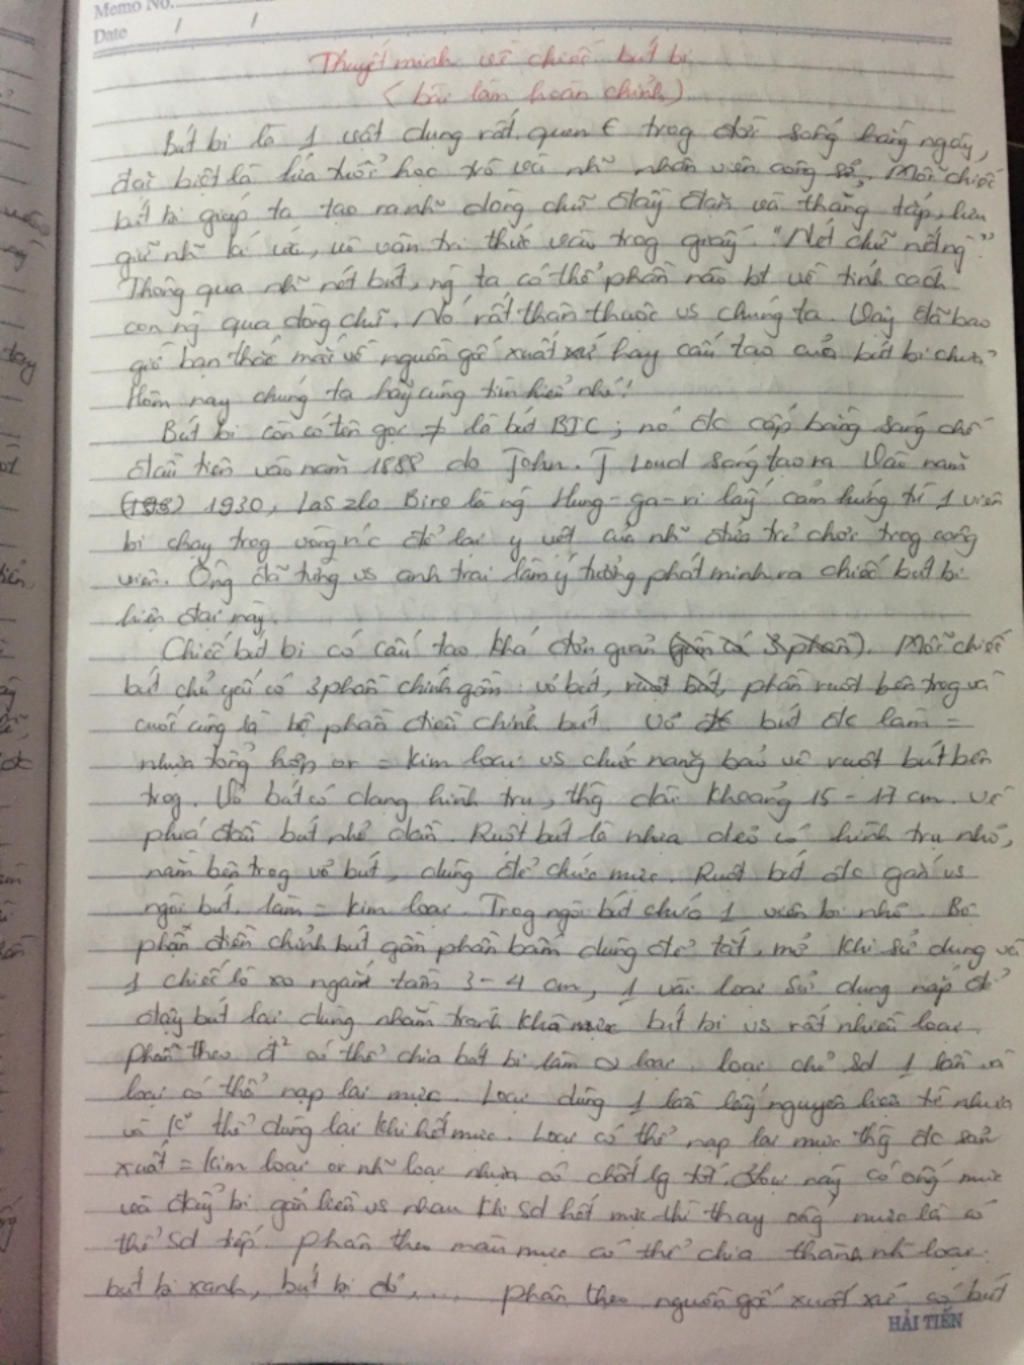 Memo No.
Date / /
Thuyết minh về chiếc bút bi
(bài làm hoàn chỉnh)
Bút bi là 1 vật dụng rất quen € trog đời sống hàng ngày,
đặc biệt là lứa tuổi học trò và nh~ nhân viên công sở. Mỗi chiếc
bút bi giúp ta tạo ra nh~ dòng chữ đầy đặn và thẳng tắp, lưu
giữ nh~ kí ức, và vần tri thức vào trog giấy. "Nét chữ nết ng`"
Thông qua nh~ nét bút, ng` ta có thể phần nào bt về tính cách
con ng` qua dòng chữ. Nó rất thân thuộc vs chúng ta. Vậy đã bao
giờ bạn thắc mắc về nguồn gốc xuất xứ hay cấu tạo của bút bi chưa?
Hôm nay chúng ta hãy cùng tìm hiểu nhé!
Bút bi còn có tên gọi ≠ là bút BIC; nó đc cấp bằng sáng chế
đầu tiên vào năm 1888 do John. J Loud sáng tạo ra. Vào năm
1930, Laszlo Biro là ng` Hung-ga-ri lấy cảm hứng từ 1 viên
bi chạy trog vũng nước để lại vệt của nh~ đứa trẻ chơi trog công
viên. Ông đã cùng vs anh trai làm ý tưởng phát minh ra chiếc bút bi
hiện đại này.
Chiếc bút bi có cấu tạo khá đơn giản (gồm có 3 phần). Mỗi chiếc
bút chủ yếu có 3 phần chính gồm: vỏ bút, ruột bút, phần ruột bên trog và
cuối cùng là bộ phận điều chỉnh bút. Vỏ bút đc làm =
nhựa tổng hợp or = kim loại vs chức năng bảo vệ ruột bút bên
trog. Vỏ bút có dạng hình trụ, thg dài khoảng 15 - 17 cm. Về
phía đầu bút nhỏ dần. Ruột bút là nhựa dẻo có hình trụ nhỏ,
nằm bên trog vỏ bút, dùng để chứa mực. Ruột bút đc gắn vs
ngòi bút. làm = kim loại. Trog ngòi bút chứa 1 viên bi nhỏ. Bộ
phận điều chỉnh bút gồm phần bấm dùng để tắt, mở khi sử dụng và
1 chiếc lò xo ngắn tầm 3 - 4 cm, 1 vài loại sử dụng nắp để
đậy bút lại dùng nhằm tránh khô mực bút bi vs rất nhiều loại.
Phần theo đ² có thể chia bút bi làm 2 loại. loại chỉ sd 1 lần và
loại có thể nạp lại mực. Loại dùng 1 lần lấy nguyên liệu từ nhựa
và k thể dùng lại khi hết mực. Loại có thể nạp lại mực thg đc sản
xuất = kim loại or nh~ loại nhựa có chất lg tốt. loại này có ống mực
và đầy bi gắn liền vs nhau khi sd hết mực thì thay ống mực là có
thể sd tiếp. Phân theo màu mực có thể chia thành nh` loại:
bút bi xanh, bút bi đỏ,.... Phân theo nguồn gốc xuất xứ có bút
HẢI TIẾN